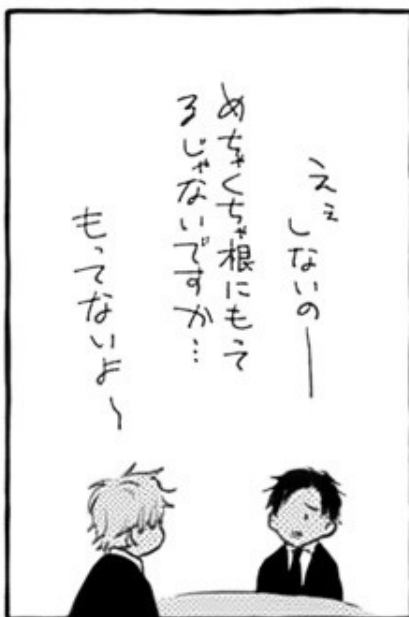 えぇ
しないのー
めちゃくちゃ根にもって
るじゃないですか…
もってないよ〜